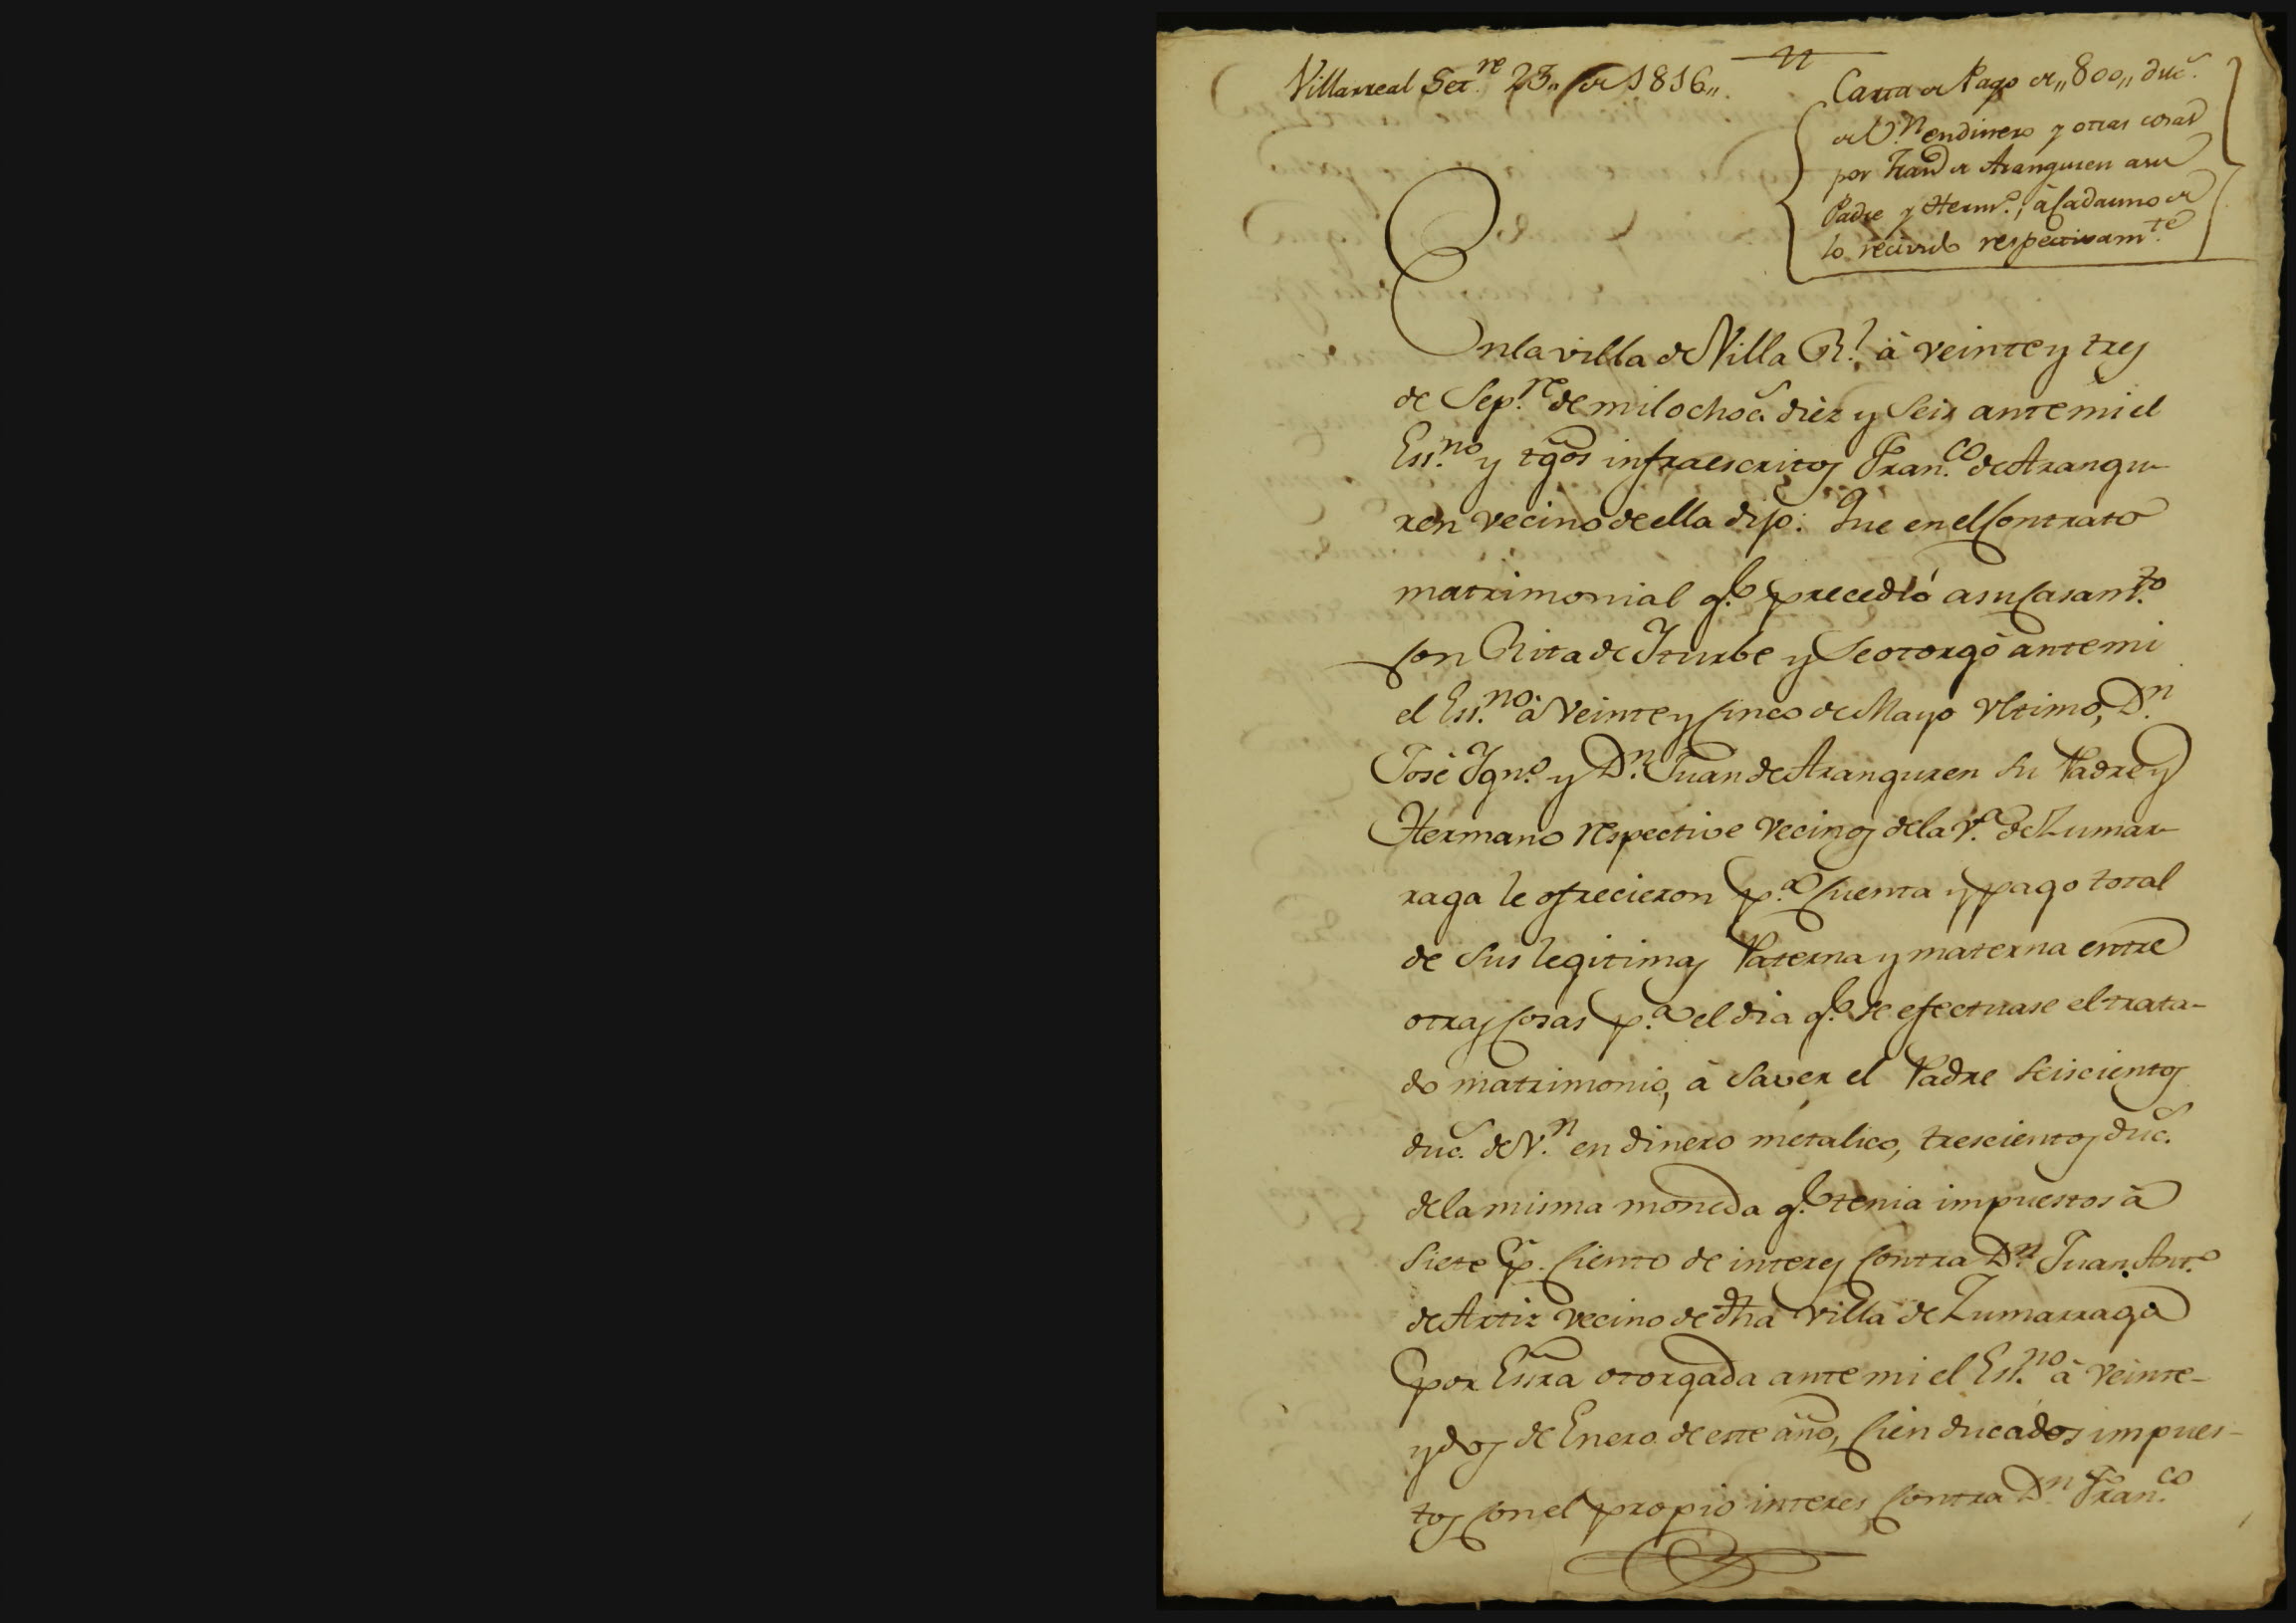 Villarreal Set.re 23,, de 1816,,
Carta de Pago de,, 800,, duc.s
de V.n en dinero y otras cosas
por Fran.co de Aranguren a su
Padre y Herm.o, à Cada uno de
lo recivido respectivam.te
En la villa de Villa R.l à veinte y tres
de Sep.re de mil ochoc.s diez y seis ante mi el
Ess.no y tgos infraescritos Fran.co de Arangu-
ren vecino de ella dijo: Que en el Contrato
matrimonial q.e precedió a su Casam.to
Con Rita de Yturbe y se otorgò ante mi
el Ess.no à Veinte y Cinco de Mayo Vltimo, D.n
Josè Ygn.o y D.n Juan de Aranguren su Padre y
Hermano respective vecinos de la V.a de Zumar-
raga le ofrecieron p.a Cuenta y pago total
de sus legitimas Paterna y materna entre
otras Cosas p.a el dia q.e se efectuase el trata-
do matrimonio, à saver el Padre seiscientos
duc.s de V.n en dinero metalico, trescientos duc.s
de la misma moneda q.e tenia impuestos à
siete p.r Ciento de interes Contra D.n Juan Ant.o
de Artiz vecino de dha villa de Zumarraga
por Essra otorgada ante mi el Ess.no à veinte-
y dos de Enero de este año, Cien ducados impues-
tos Con el propio interes Contra D.n Fran.co